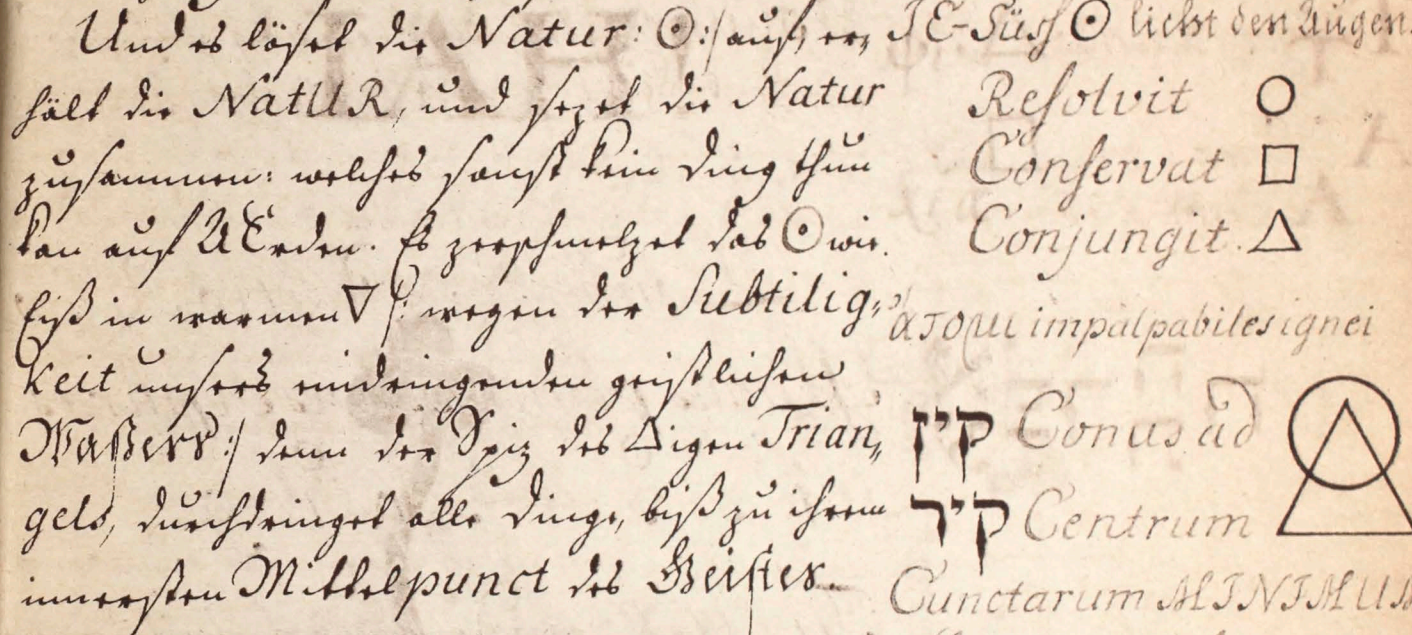 Und es löset die Natur: ☉:/ auf, er=
hält die NatUR, und sezet die Natur
zusammen: welches sonst kein Ding thun
kan auf AErden. Es zerschmelzet das ☉ wie
Eiß in warmen ▽ /: wegen der Subtilig=
keit unsers eindringenden geistlichen
Waßers :/ denn der Spiz des △igen Trian=
gels, durchdringet alle Dinge, biß zu ihrem
innersten Mittelpunct des Geistes.
JE-Süss ☉ licht den Augen.
Resolvit ○
Conservat □
Conjungit. △
impalpabiles ignei
קין Conus ad
קיר Centrum
Cunctarum MINIMUM